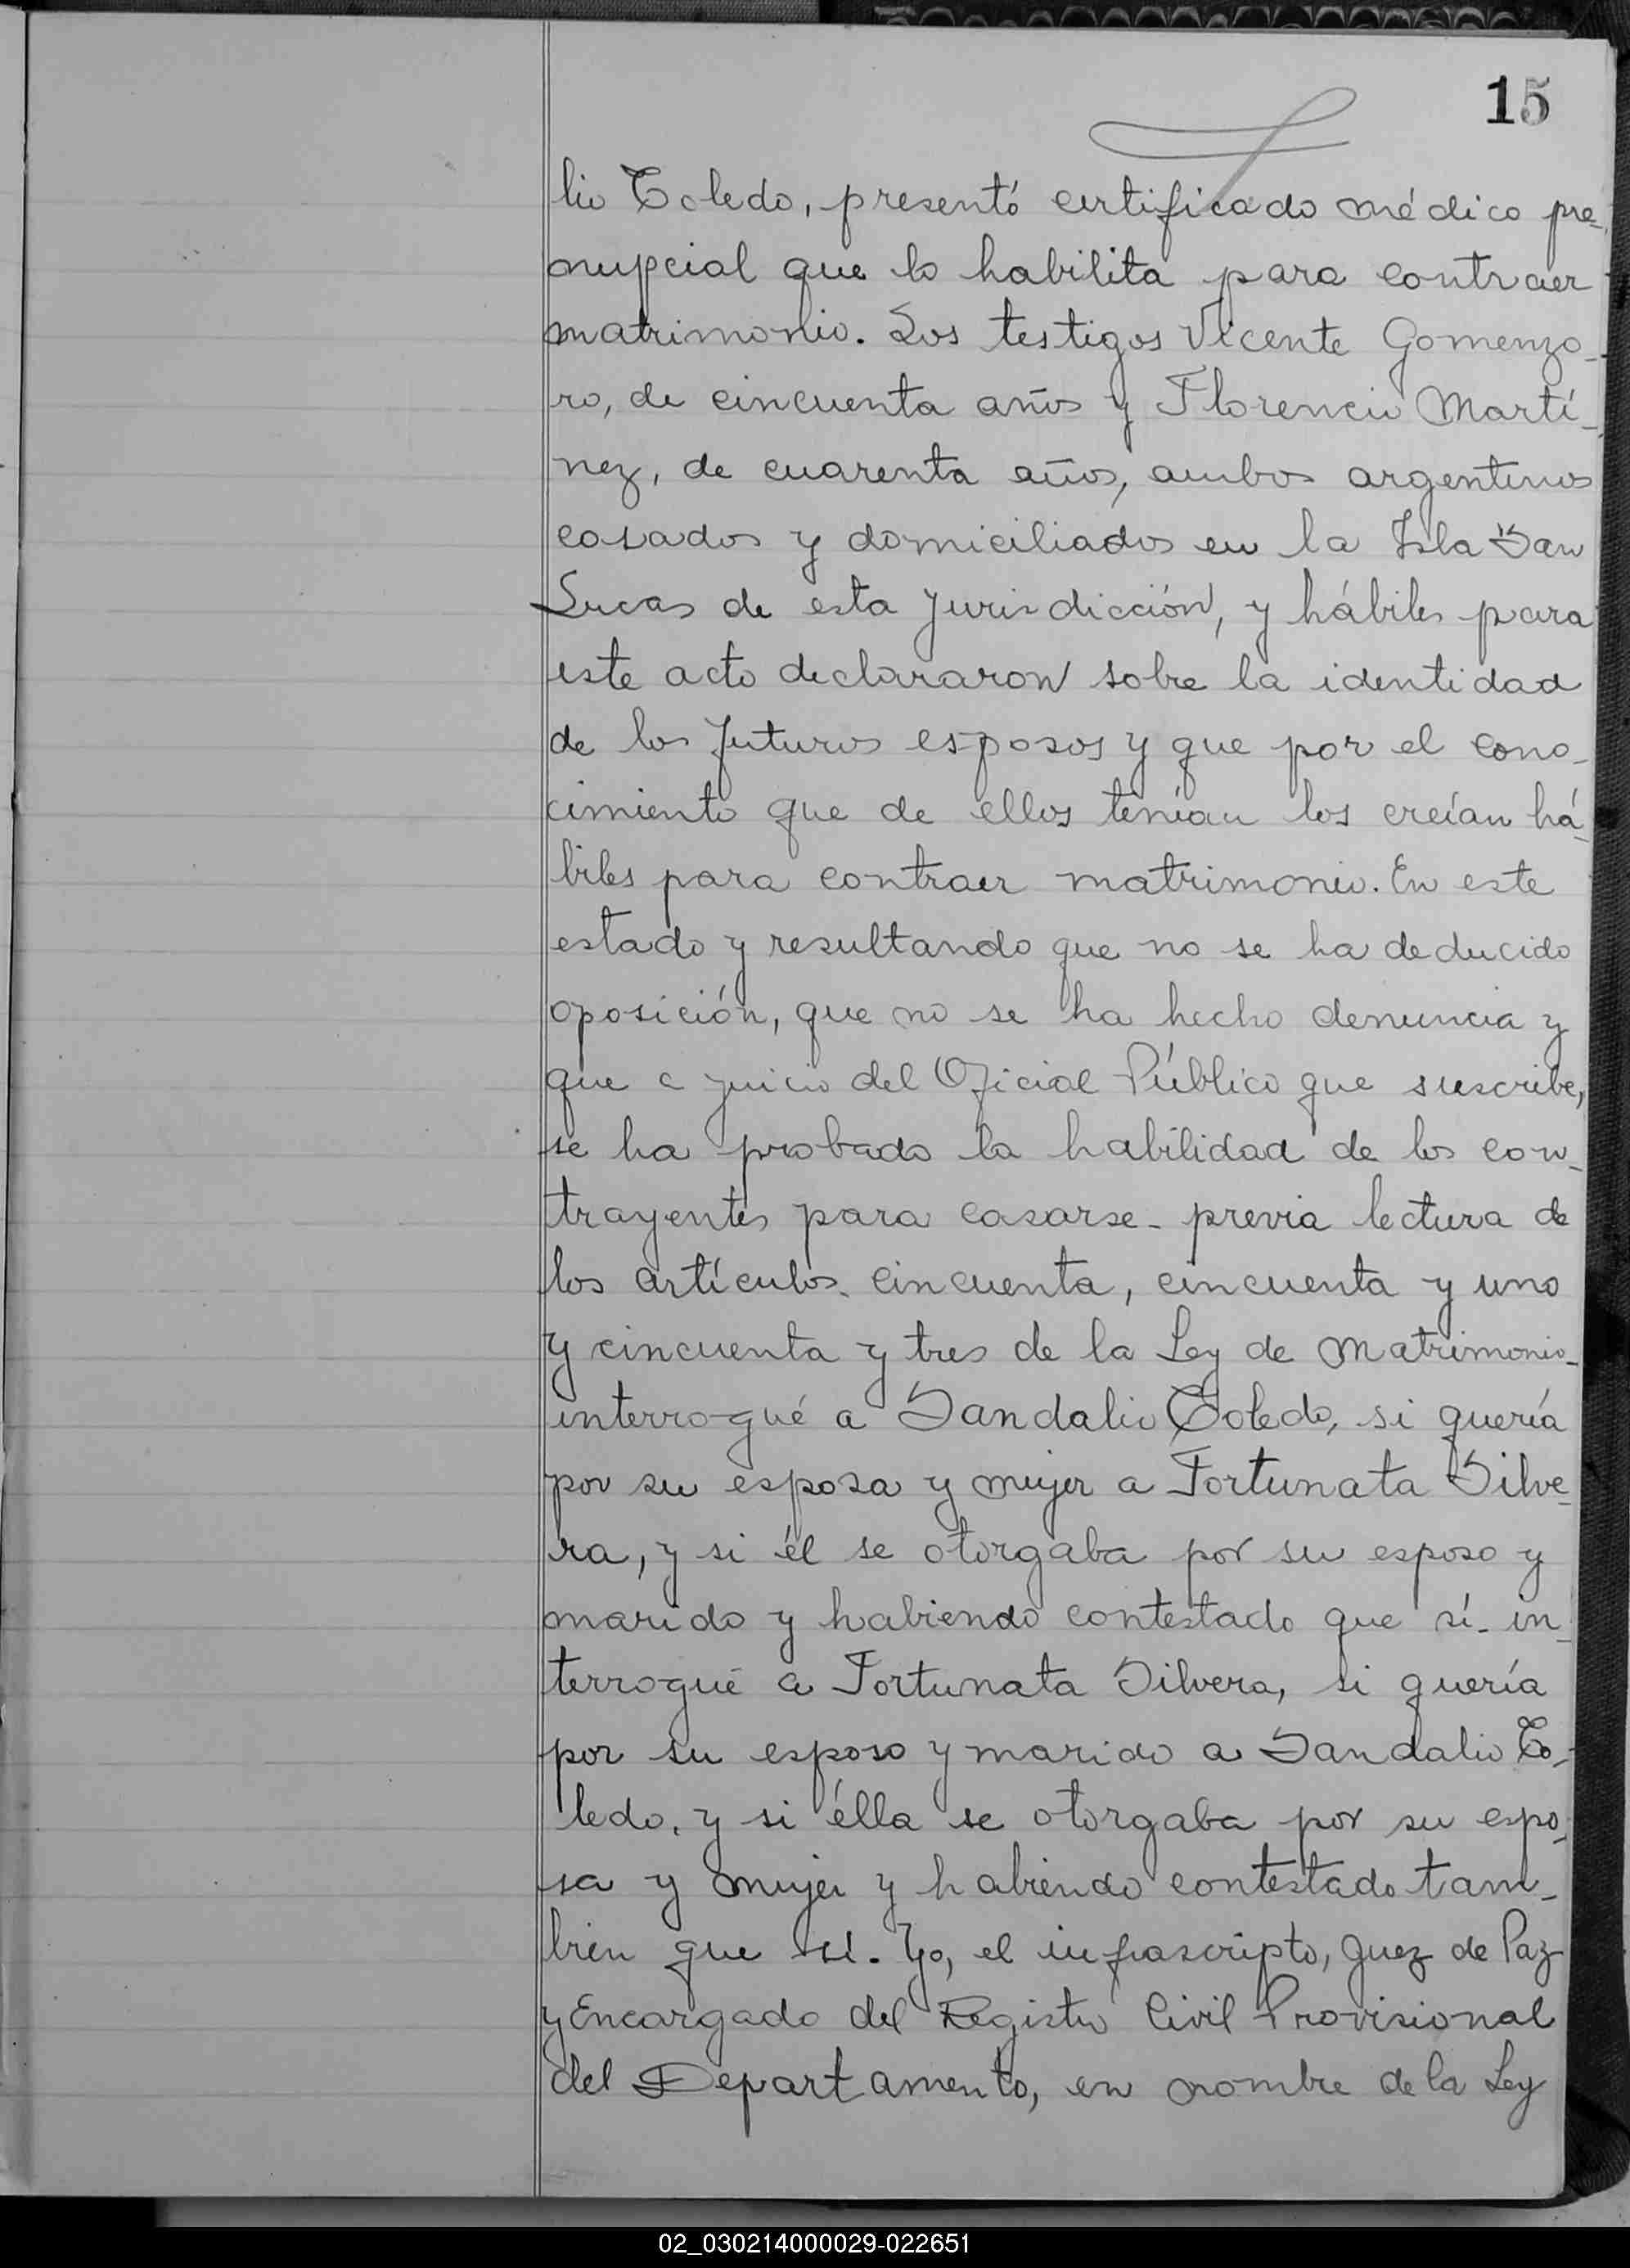 15
lio Toledo, presentó certificado médico pre-
nupcial que lo habilita para contraer
matrimonio. Los testigos Vicente Gomenzo-
ro, de cincuenta años y Florencio Martí-
nez, de cuarenta años, ambos argentinos
casados y domiciliados en la Isla San
Lucas de esta jurisdicción, y hábiles para
este acto declararon sobre la identidad
de los futuros esposos y que por el cono-
cimiento que de ellos tenían los creían há-
biles para contraer matrimonio. En este
estado y resultando que no se ha deducido
oposición, que no se ha hecho denuncia y
que a juicio del Oficial Público que suscribe,
se ha probado la habilidad de los con-
trayentes para casarse - previa lectura de
los artículos cincuenta, cincuenta y uno
y cincuenta y tres de la Ley de Matrimonio -
interrogué a Sandalio Toledo, si quería
por su esposa y mujer a Fortunata Silve-
ra, y si él se otorgaba por su esposo y
marido y habiendo contestado que sí - in-
terrogué a Fortunata Silvera, si quería
por su esposo y marido a Sandalio To-
ledo, y si élla se otorgaba por su espo-
sa y mujer y habiendo contestado tam-
bien que sí. Yo, el infrascripto, Juez de Paz
y Encargado del Registro Civil Provisional
del Departamento, en nombre de la Ley
02_030214000029-022651